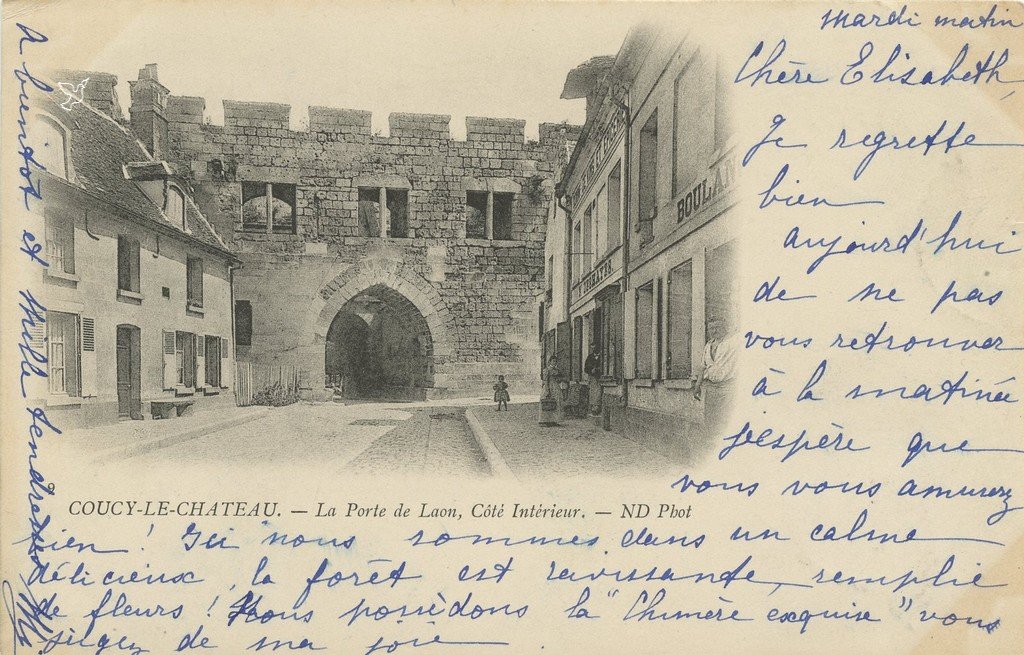 mardi matin
Chère Elisabeth,
Je regrette
bien
aujourd'hui
de ne pas
vous retrouver
à la matinée
j'espère que
vous vous amusez
bien ! Ici nous sommes dans un calme
délicieux, la forêt est ravissante, remplie
de fleurs ! Nous possèdons la "Chimère exquise" vous
jugez de ma joie
A bientot et mille tendresses
BOULAN
THÉATRE
COUCY-LE-CHATEAU. — La Porte de Laon, Côté Intérieur. — ND Phot
9